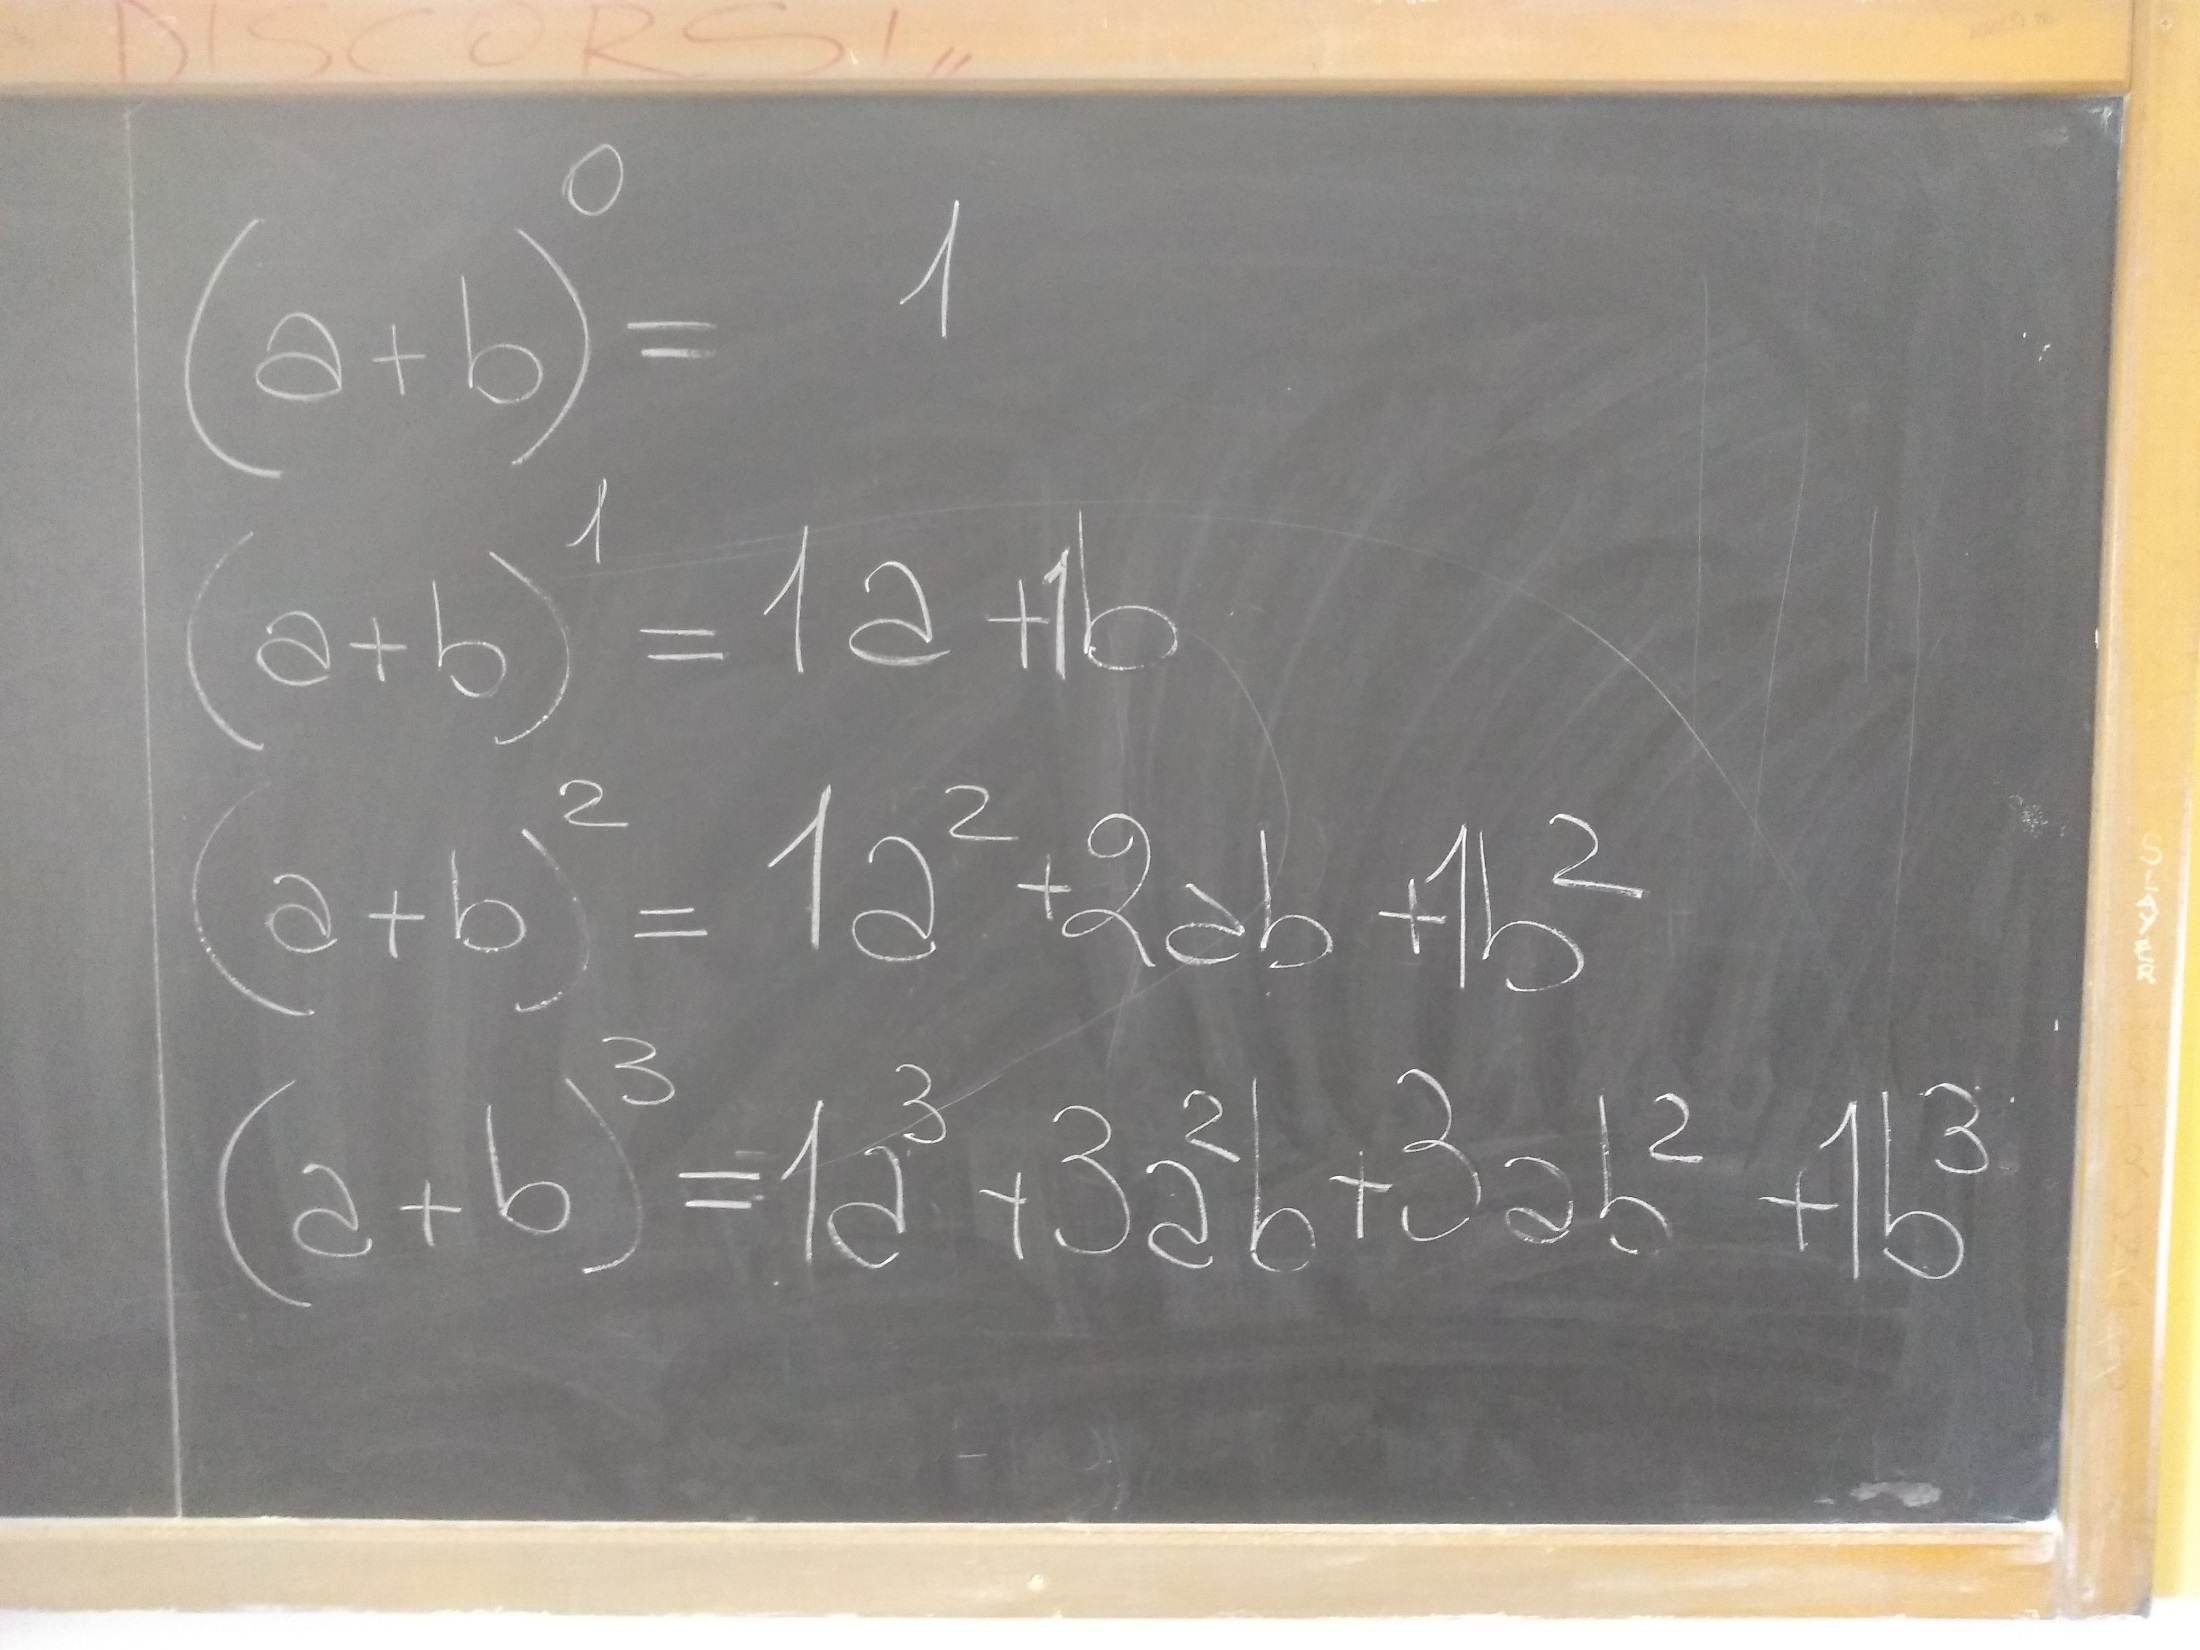 DISCORSI,,
(a+b)⁰ = 1
(a+b)¹ = 1a+1b
(a+b)² = 1a²+2ab+1b²
(a+b)³ = 1a³+3a²b+3ab²+1b³
SLAYER